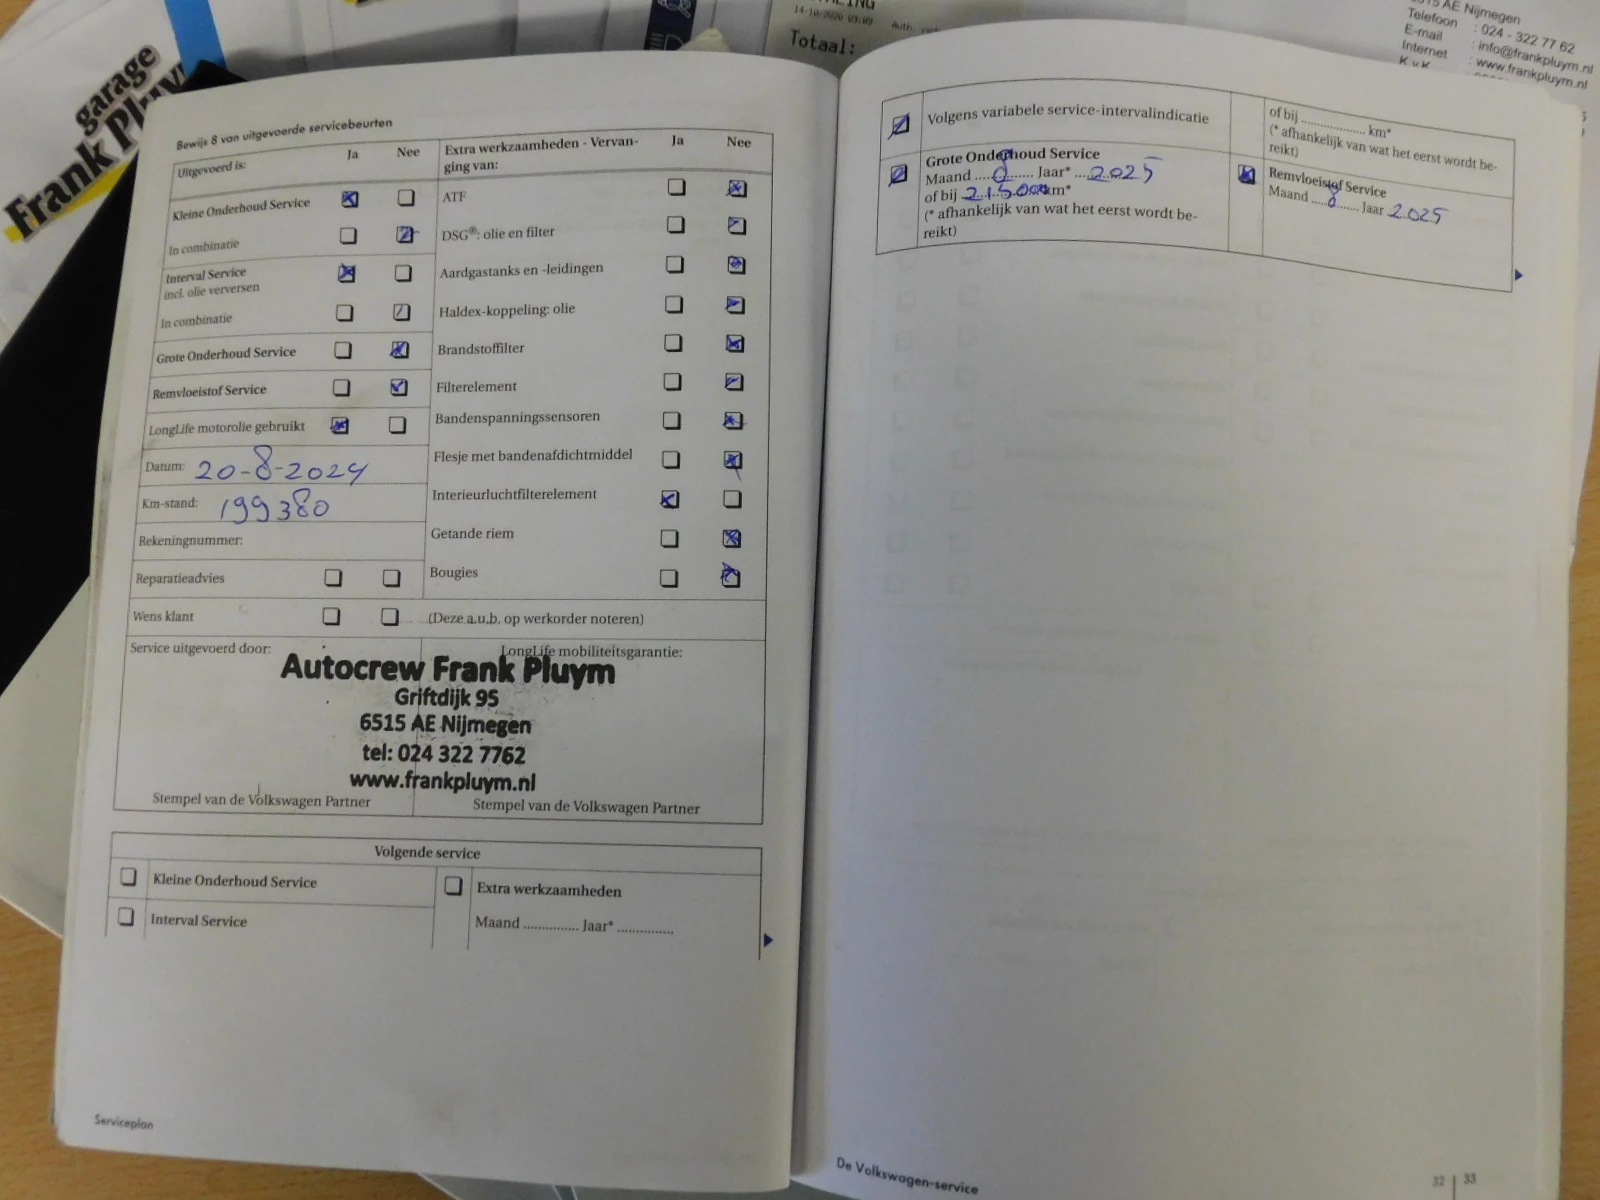 garage
Frank Pluy
14-10-2020 09:09
Totaal:
6515 AE Nijmegen
Telefoon : 024 - 322 77 62
E-mail : info@frankpluym.nl
Internet : www.frankpluym.nl
K.v.K
Bewijs 8 van uitgevoerde servicebeurten
Uitgevoerd is: Ja Nee
Kleine Onderhoud Service
In combinatie
Interval Service
incl. olie verversen
In combinatie
Grote Onderhoud Service
Remvloeistof Service
LongLife motorolie gebruikt
Datum: 20-8-2024
Km-stand: 199380
Rekeningnummer:
Reparatieadvies
Wens klant
Extra werkzaamheden - Vervan-
ging van: Ja Nee
ATF
DSG®: olie en filter
Aardgastanks en -leidingen
Haldex-koppeling: olie
Brandstoffilter
Filterelement
Bandenspanningssensoren
Flesje met bandenafdichtmiddel
Interieurluchtfilterelement
Getande riem
Bougies
(Deze a.u.b. op werkorder noteren)
Service uitgevoerd door:
LongLife mobiliteitsgarantie:
Autocrew Frank Pluym
Griftdijk 95
6515 AE Nijmegen
tel: 024 322 7762
www.frankpluym.nl
Stempel van de Volkswagen Partner
Stempel van de Volkswagen Partner
Volgende service
Kleine Onderhoud Service
Interval Service
Extra werkzaamheden
Maand .............. Jaar* ..............
Serviceplan
Volgens variabele service-intervalindicatie
Grote Onderhoud Service
Maand ....8.... Jaar* ...2025
of bij 215.000 km*
(* afhankelijk van wat het eerst wordt be-
reikt)
of bij ................ km*
(* afhankelijk van wat het eerst wordt be-
reikt)
Remvloeistof Service
Maand ....8.... Jaar 2025
De Volkswagen-service
32 | 33